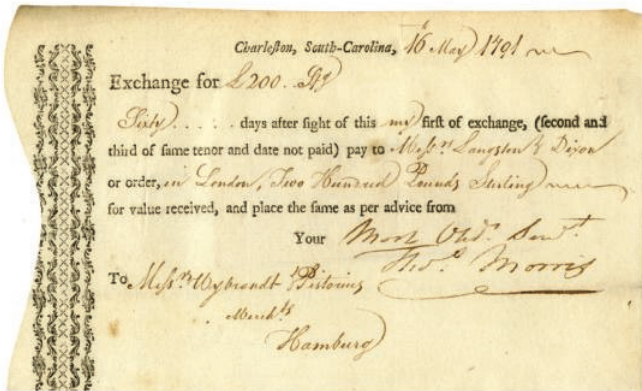 Charleston, South-Carolina, 16 May 1791
Exchange for £200. Stg
Sixty . . . . . days after sight of this my first of exchange, (second and
third of same tenor and date not paid) pay to Messrs Langston & Dixon
or order, in London, Two Hundred Pounds Sterling
for value received, and place the same as per advice from
Your Most Obdt. Servt.
Thos. Morris
To Messrs Wybrandt & Pistorius
Merchts
Hamburg